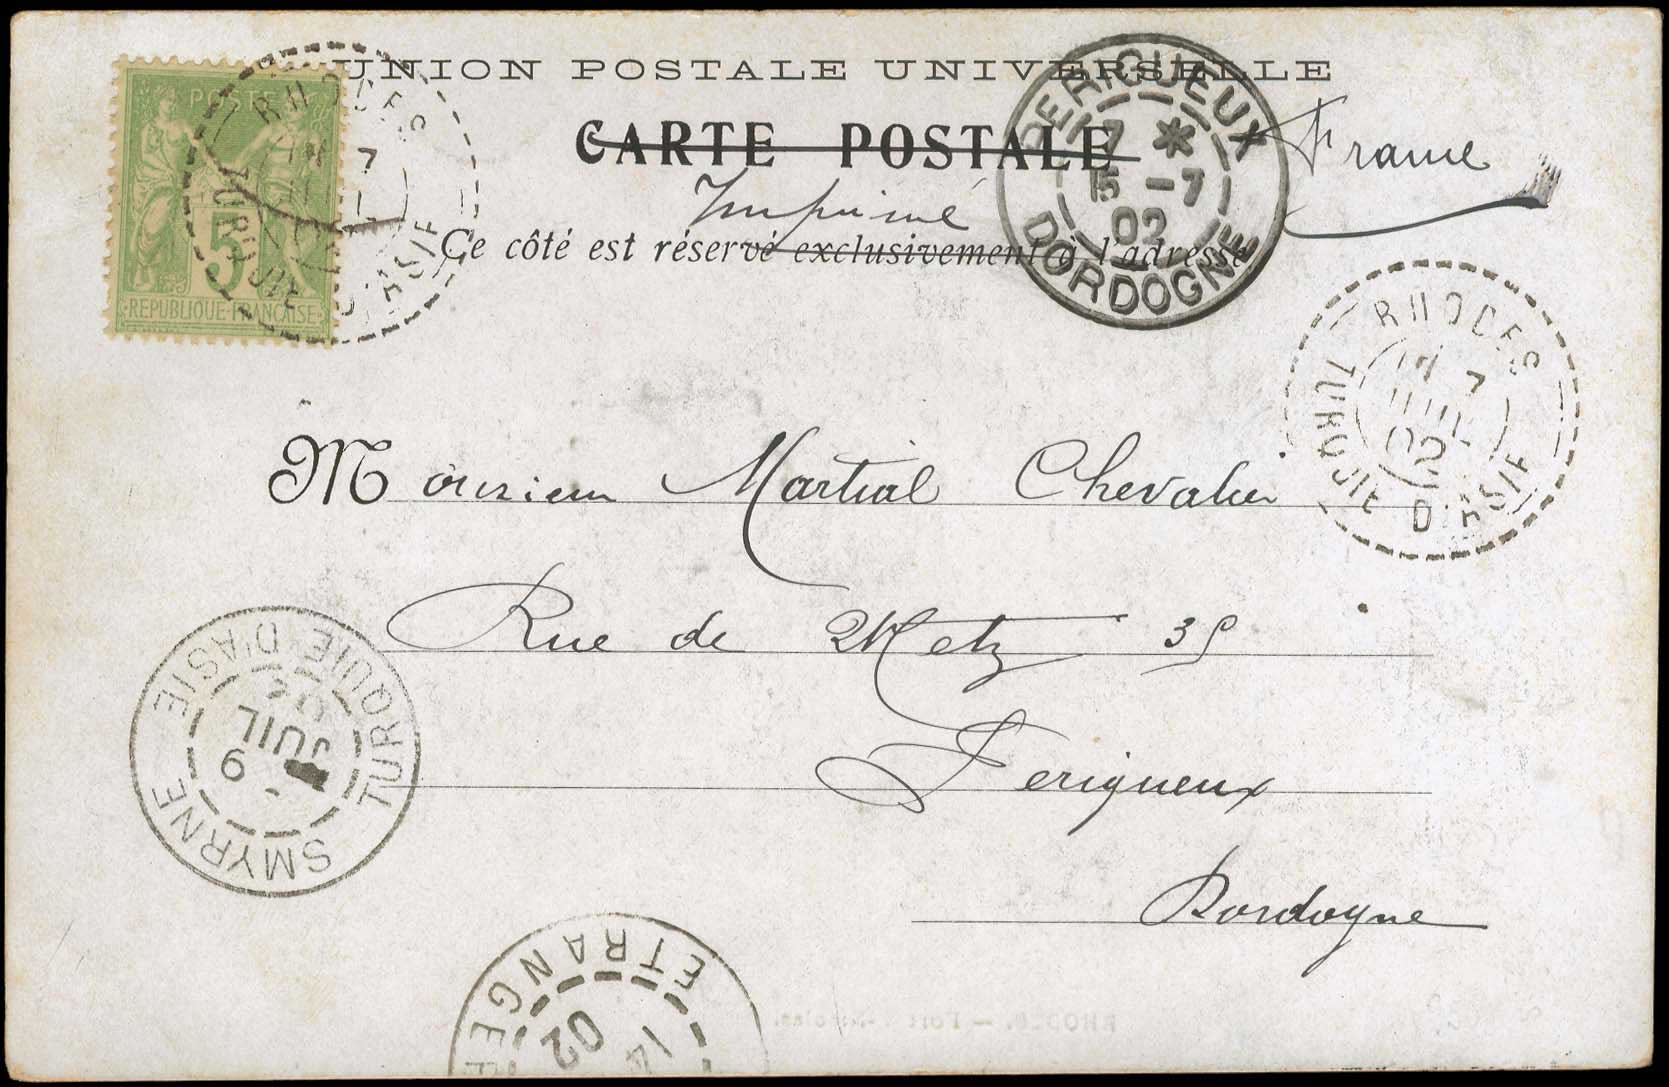 UNION POSTALE UNIVERSELLE
CARTE POSTALE
France
Imprimé
Ce côté est réservé exclusivement à l'adresse
POSTE
5
REPUBLIQUE FRANÇAISE
RHODES
7
TURQUIE D'ASIE
PERIGUEUX
7 *
15 -7
02
DORDOGNE
RHODES
7
JUIL
02
TURQUIE D'ASIE
Monsieur Martial Chevalier
Rue de Metz 35
Perigueux
Dordogne
TURQUIE D'ASIE
9
JUIL
02
SMYRNE
ETRANGER
14
02
RHODES. — Fort